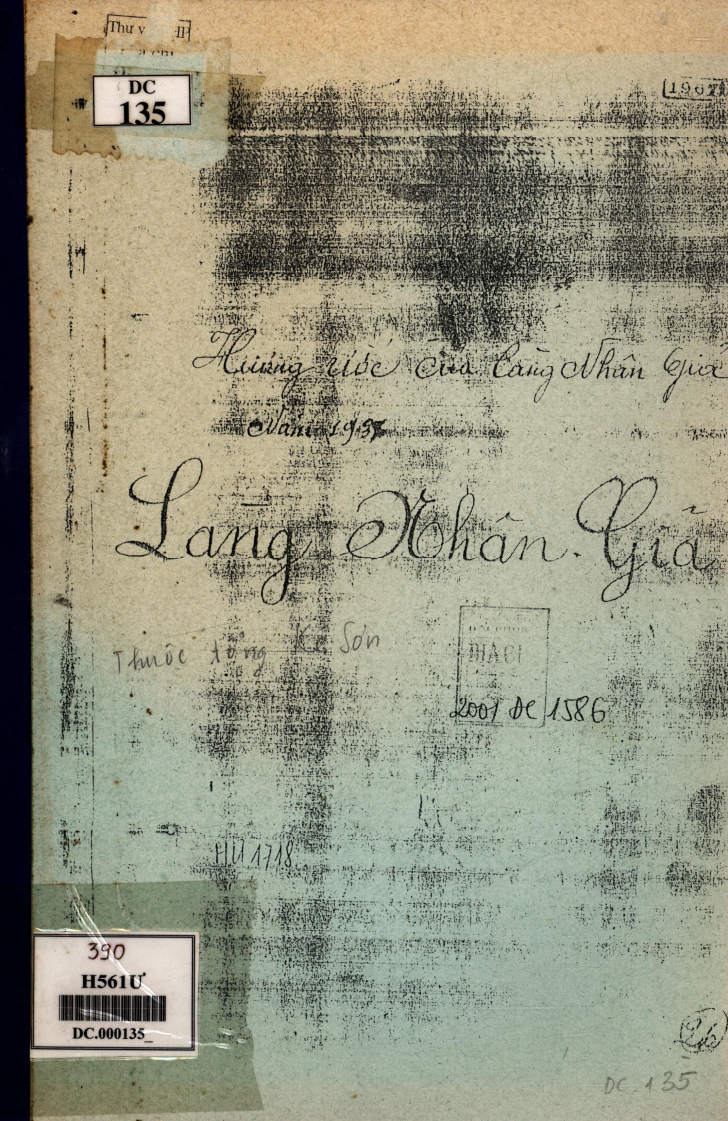 Thư v
DC
135
Hương ước của làng Nhân Giả
Năm 1937
Làng Nhân-Giả
Thuộc tổng Kê Sơn
ĐỊA CHÍ
2001 DC 1586
HU 1718
390
H561Ư
DC.000135_
26
DC 135